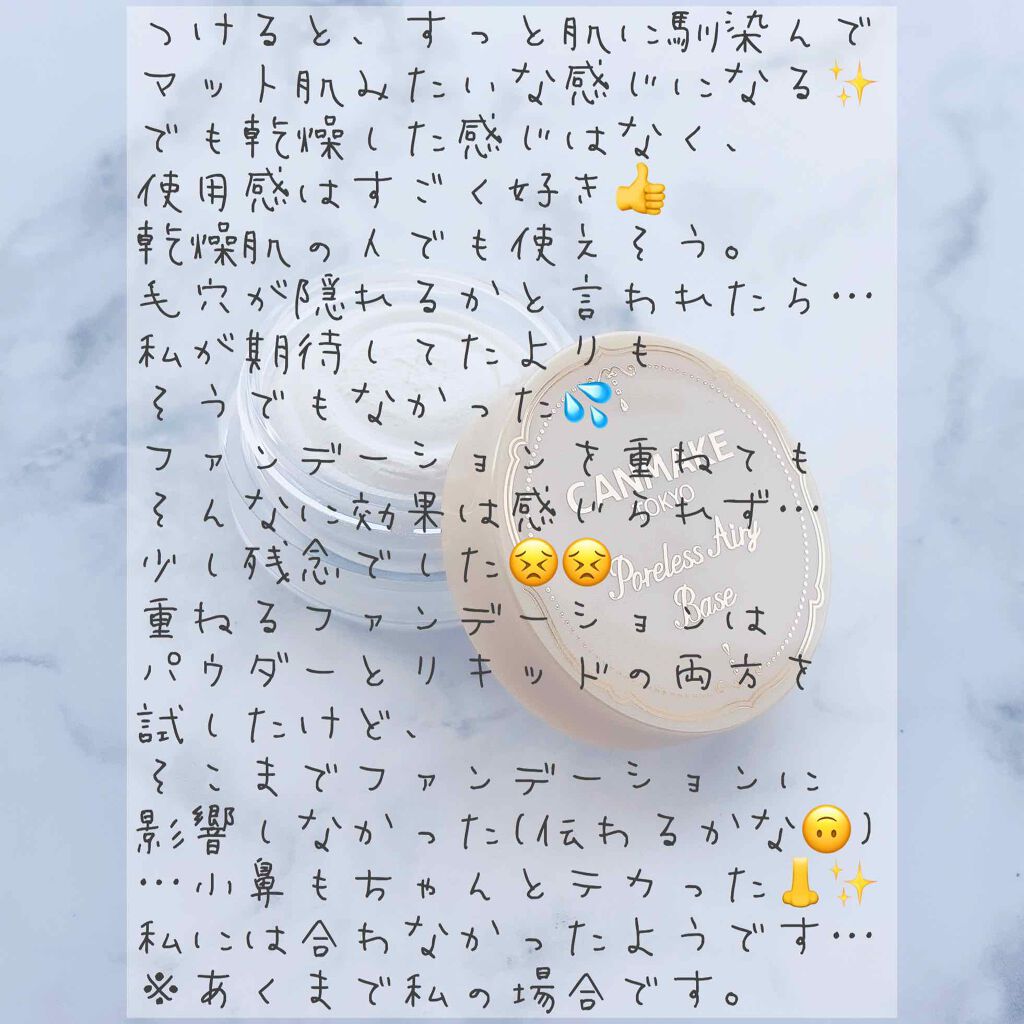 つけると、すっと肌に馴染んで
マット肌みたいな感じになる✨
でも乾燥した感じはなく、
使用感はすごく好き👍
乾燥肌の人でも使えそう。
毛穴が隠れるかと言われたら…
私が期待してたよりも
そうでもなかった💦
ファンデーションを重ねても
そんなに効果は感じられず…
少し残念でした😣😣
重ねるファンデーションは
パウダーとリキッドの両方を
試したけど、
そこまでファンデーションに
影響しなかった(伝わるかな🙃)
…小鼻もちゃんとテカった👃✨
私には合わなかったようです…
※あくまで私の場合です。
CANMAKE
TOKYO
Poreless Airy
Base